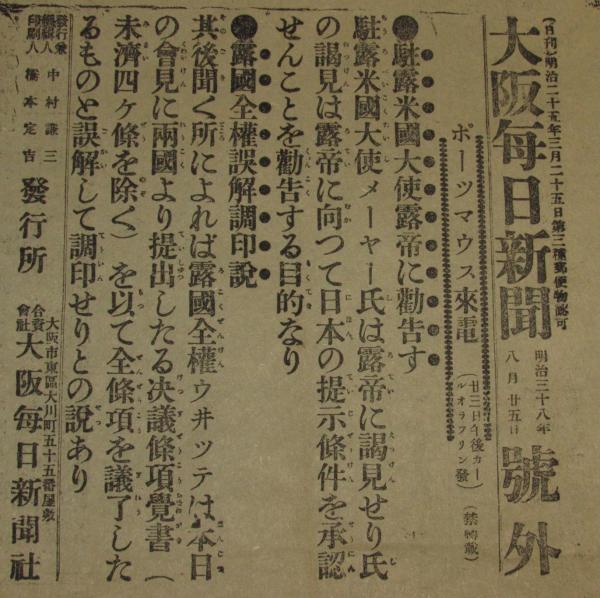 (日刊)明治二十五年三月二十五日第三種郵便物認可
大阪每日新聞
明治三十八年
八月廿五日
號外
ポーツマウス來電
(廿三日午後カー
ルオラフリン發)
(禁轉載)
●駐露米國大使露帝に勸告す
駐露米國大使メーヤー氏は露帝に謁見せり氏
の謁見は露帝に向つて日本の提示條件を承認
せんことを勸告する目的なり
●露國全權誤解調印說
其後聞く所によれば露國全權ウ井ツテは本日
の會見に兩國より提出したる決議條項覺書(
未濟四ヶ條を除く)を以て全條項を議了した
るものと誤解して調印せりとの說あり
發行兼
編輯人
中村謙三
印刷人
橋本定吉
發行所
大阪市東區大川町五十五番屋敷
合資
會社
大阪每日新聞社